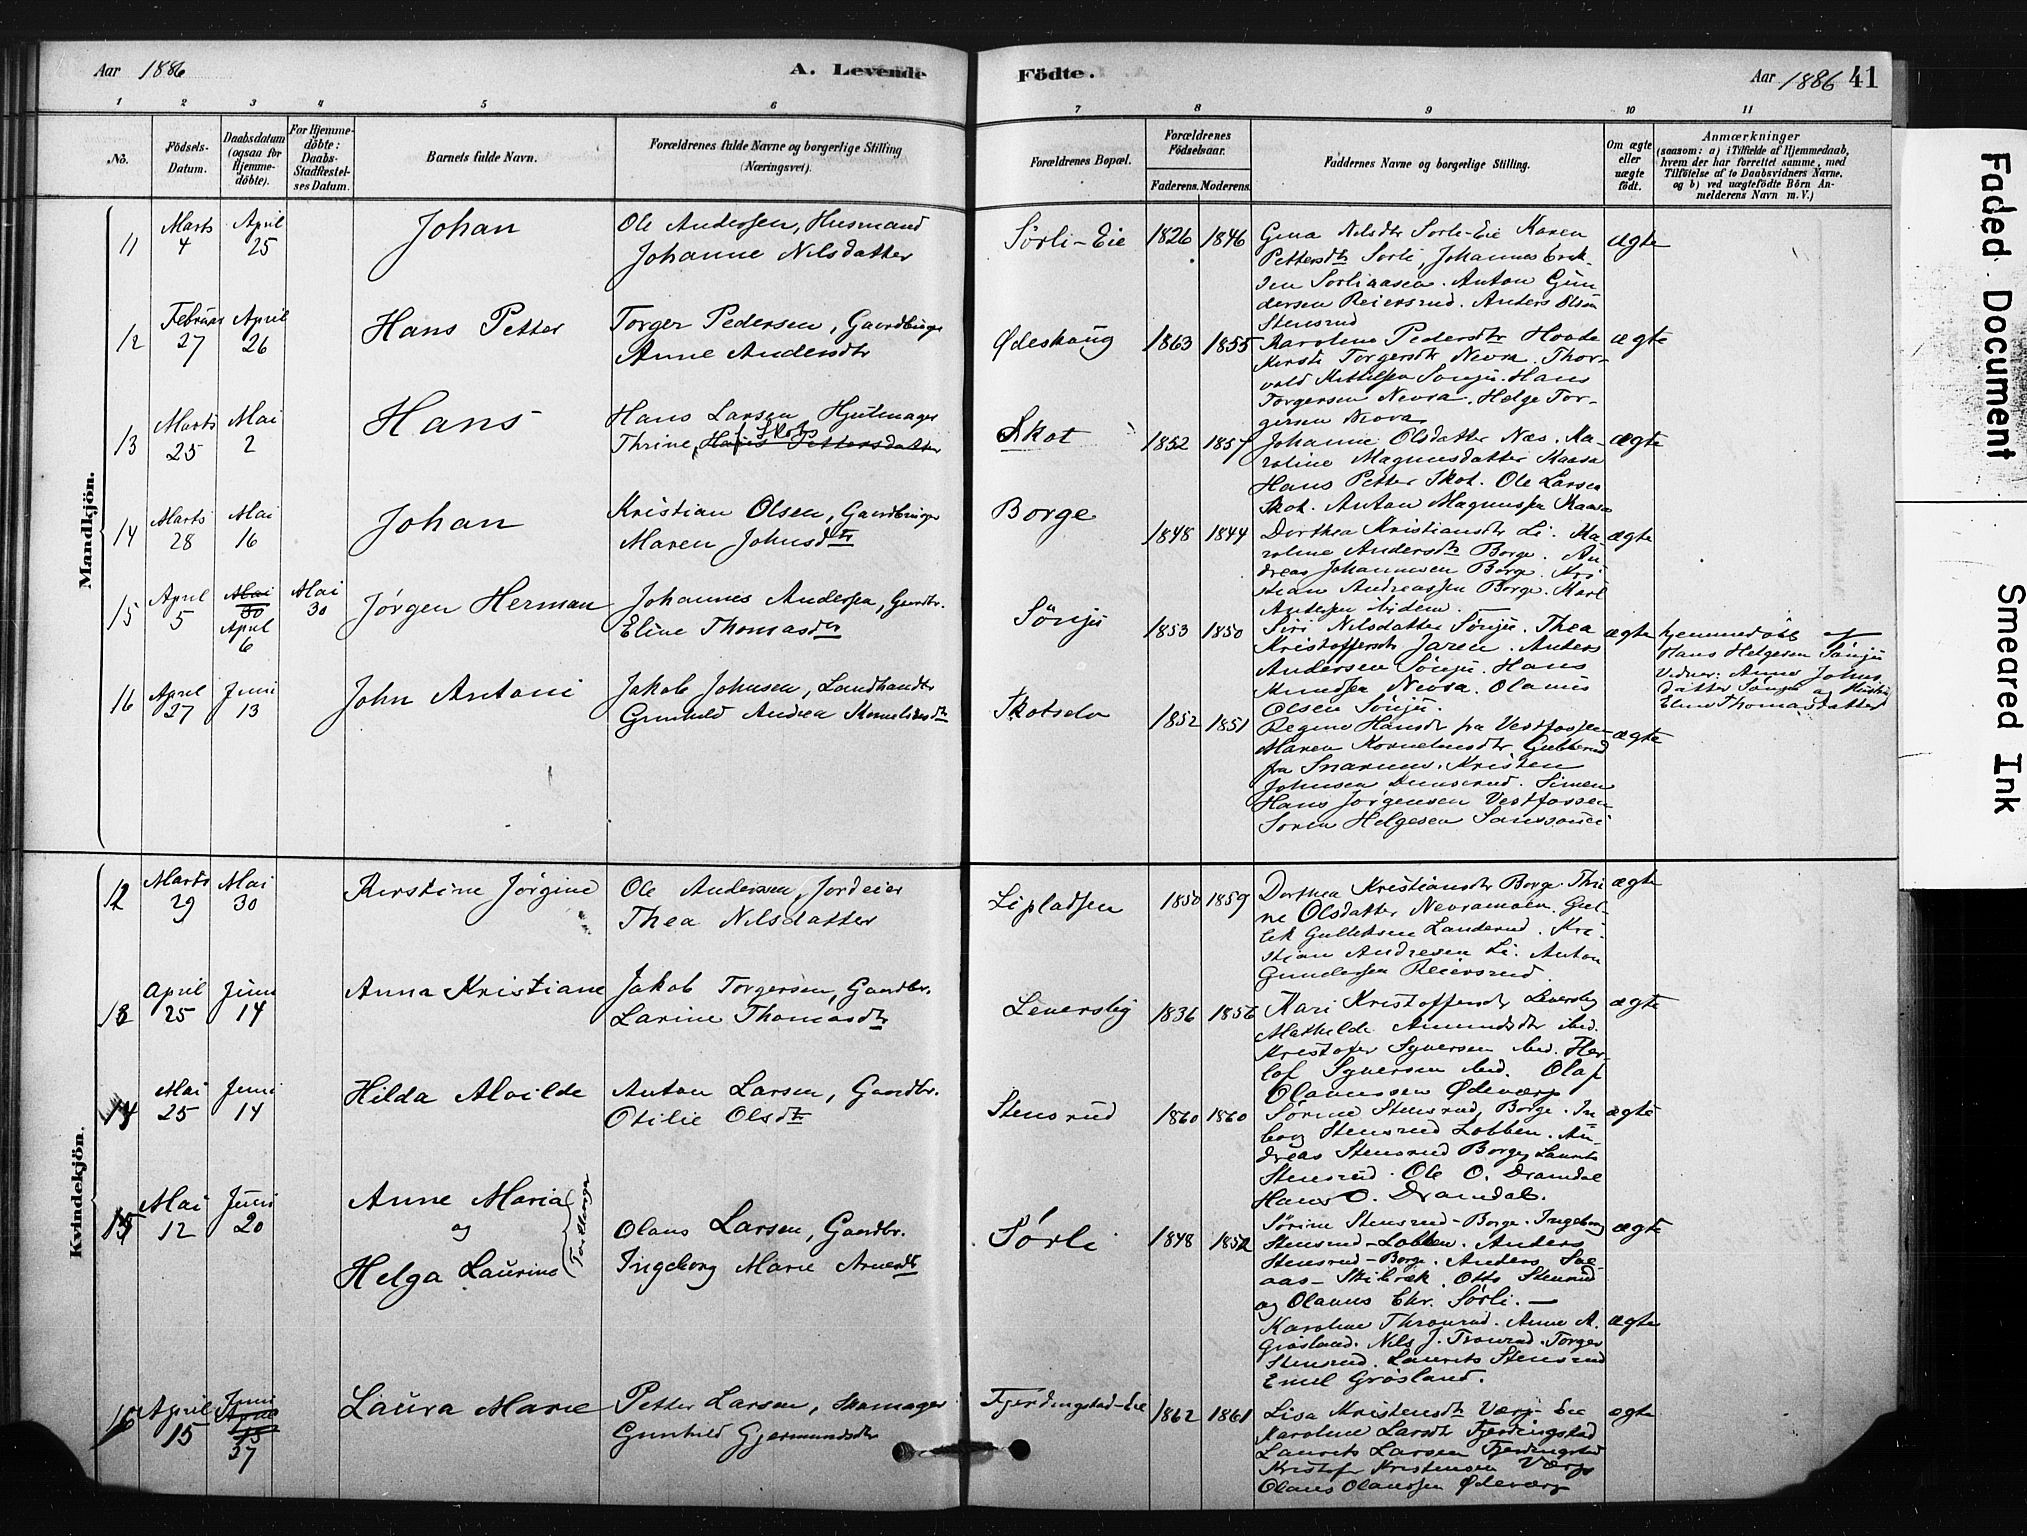 Aar 1886
A. Levende
Födte.
Aar 1886
41
1 2 3 4 5 6 7 8 9 10 11
No.
Födsels-Datum.
Daabsdatum (ogsaa for Hjemme-döbte).
For Hjemme-döbte: Daabs-Stadfæstel-ses Datum.
Barnets fulde Navn.
Forældrenes fulde Navne og borgerlige Stilling (Næringsvei).
Forældrenes Bopæl.
Forældrenes Födselsaar.
Faderens. Moderens.
Faddernes Navne og borgerlige Stilling.
Om ægte eller uægte födt.
Anmærkninger
(saasom: a) i Tilfælde af Hjemmedaab, hvem der har forrettet samme, med Tilföielse af to Daabsvidners Navne. og b) ved uægtefödte Börn An-melderens Navn m. V.)
Mandkjön.
11 Marts 4 April 25 Johan
Ole Andersen, Husmand
Johanne Nilsdatter
Sörli-Eie 1826 1846
Gina Nilsdtr Sorli-Eie Karen
Pettersdtr Sorli, Johannes Erik-
sen Sorliaasen. Anton Gun
dersen Reiersrud. Anders Olsen
Stensrud
ægte
12 Februar 27 April 26 Hans Petter
Torger Pedersen, Gaardbruger
Anne Andersdtr
Ødeshaug 1863 1855
Karoline Pedersdtr Hovde
Kersti Torgersdtr Nevra. Thor-
vald Kittilsen Sønju. Hans
Torgersen Nevra. Helge Tor-
gersen Nevra
ægte
13 Marts 25 Mai 2 Hans
Hans Larsen, Hjulmager
Thrine, Hans Pettersdatter
Skot 1852 1857
Johanne Olsdatter Næs. Ka-
roline Magnusdatter Kaasa
Hans Petter Skot. Ole Larsen
Skot. Anton Magnussen Kaasa
ægte
14 Marts 28 Mai 16 Johan
Kristian Olsen, Gaardbruger
Maren Johnsdtr
Borge 1848 1844
Dorthea Kristiansdtr Li. Ka-
roline Andersdtr Borge. An-
dreas Johannesen Borge. Kri
stian Andreassen Borge. Karl
Andersen ibidem.
ægte
15 April 5 Mai 30 April 6 Mai 30 Jørgen Herman
Johannes Andersen, Gaardbr.
Eline Thomasdtr
Sönju 1853 1850
Siri Nilsdatter Sönju. Thea
Kristoffersdtr Jaren. Anders
Andersen Sönju. Hans
Knudsen Nevra. Olaus
Olsen Sönju.
ægte
hjemmedöbt af
Hans Helgesen Sönju
Vidner: Anne Johns
datter Sönju og
Eline Thomasdatter
16 April 27 Juni 13 John Antoni
Jakob Johnsen, Landhandlr
Gunhild Andrea Kornelidsdtr
Skotselv 1852 1851
Regine Hansdtr fra Vestfossen
Maren Korneliusdtr Gubberud
fra Snarum. Kristen
Johnsen Dunserud. Simen
Hans Jörgensen Vestfossen
Soren Helgesen Sanssouci
ægte
Kvindekjön.
12 Marts 29 Mai 30 Kerstine Jörgine
Ole Andersen, Jordeier
Thea Nilsdatter
Lipladsen 1850 1859
Dorthea Kristiansdtr Borge. Thri
ne Olsdatter Nevramoen. Gul-
lik Gulliksen Landerud. Kri-
stian Andresen Li. Anton
Gundersen Reiersrud
ægte
13 April 25 Juni 14 Anna Kristiane
Jakob Torgersen, Gaardbr.
Larine Thomasdtr
Leversby 1836 1856
Kari Kristoffersdtr Leversby
Mathilde Amundsdtr ibid.
Kristofer Syversen ibid. Her-
lof Syversen ibid. Olaf
Olaunssen Ødeværp
ægte
14 Mai 25 Juni 14 Hilda Alvilde
Anton Larsen, Gaardbr.
Otilie Olsdtr
Stensrud 1860 1860
Sörine Stensrud, Borge. In
borg Stensrud Lobben. An-
dreas Stensrud Borge, Laurits
Stensrud. Ole O. Dramdal
Hans O. Dramdal.
ægte
15 Mai 12 Juni 20 Anne Maria
og
Helga Laurine
Tvillinger
Olaus Larsen, Gaardbr.
Ingeborg Marie Arnesdtr
Sörli 1848 1852
Sörine Stensrud-Borge. Ingeborg
Stensrud-Lobben. Anders
Stensrud-Borge. Anders
aas-Skibræk. Otto Stensrud
og Olaus Chr. Sörli. —
ægte
Karoline Thronrud. Anne A.
Grosland. Nils J. Tronrud. Torger
Stensrud. Laurits Stensrud
Emil Grösland.
ægte
16 April 15 Juni Laura Marie
Petter Larsen, Skomager
Gunhild Gjermundsdtr
Fjerdingstad-Eie 1862 1861
Lisa Kristensdtr Værp-Eie
Karoline Larsdtr Fjerdingstad
Laurits Larsen Fjerdingstad
Kristofer Kristensen Værp
Olaus Olaussen Ødeværp
ægte
Faded Document
Smeared Ink